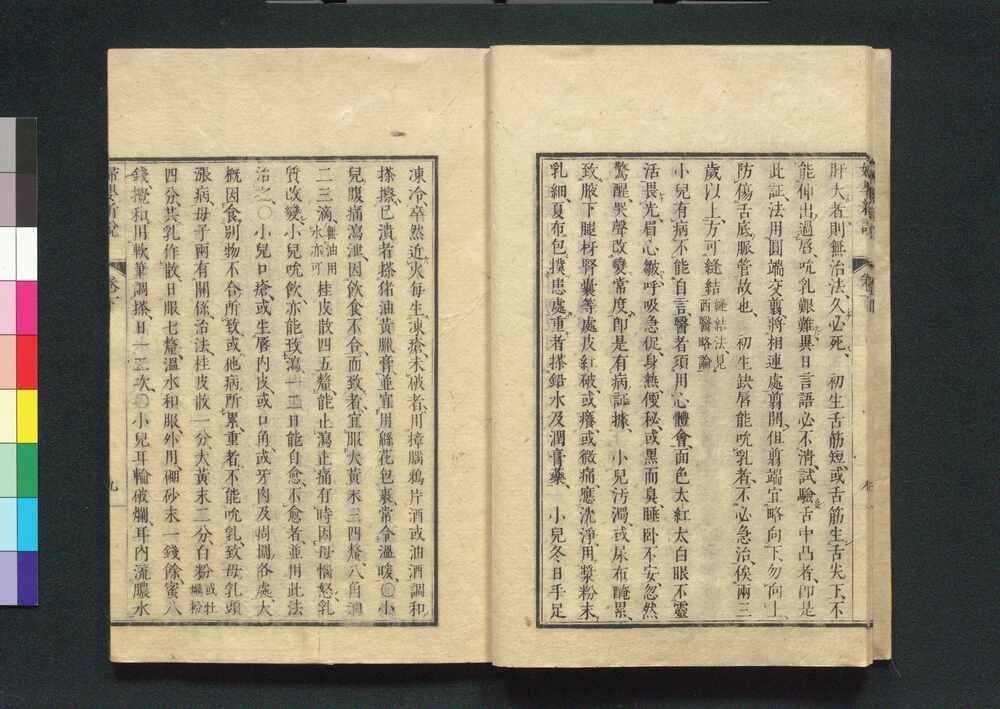 肝大者則無治法久必死、初生舌筋短或舌筋生舌尖下、不
能伸出過唇吮乳艱難異日言語必不淸試驗舌中凸者卽是
此証法用圓端交剪將相連處剪開但剪端宜略向下勿向上、
防傷舌底脈管故也、初生缺唇能吮乳者不必急治俟兩三
歲以上方可縫結縫結法見西醫略論
小兒有病不能自言醫者須用心體會面色太紅太白眼不靈
活畏光眉心皺呼吸急促身熱便秘或黑而臭睡卧不安忽然
驚醒哭聲改變常度卽是有病証據、小兒汚濁或尿布醃累、
致腋下腿枒腎囊等處皮紅破或癢或微痛應洗淨用漿粉末
乳細夏布包撲患處重者搽鉛水及潤膏藥、小兒冬日手足
凍冷卒然近火每生凍瘡未破者用樟腦鴉片酒或油酒調和
搽擦已潰者搽猪油黃臘膏並宜用綿花包裹常令溫暖、〇小
兒腹痛瀉泄因飲食不合而致者宜服大黃末三四釐八角油
二三滴無油用水亦可桂皮散四五釐能止瀉止痛有時因母惱怒乳
質改變小兒吮飲亦能致瀉一二日能自愈不愈者並用此法
治之、〇小兒口瘡或生唇內皮或口角或牙肉及周圍各處大
槪因食別物不合所致或他病所累重者不能吮乳致母乳頭
漲病母子兩有關係治法桂皮散一分大黃末二分白粉或牡蠣粉
四分共乳作散日服七釐溫水和服外用硼砂末一錢餘蜜八
錢攪和用軟筆調搽日一二次〇小兒耳輪破爛耳內流膿水